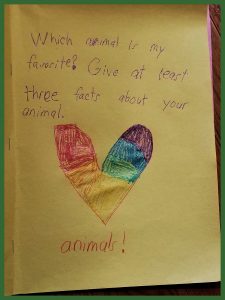 Which animal is my
favorite? Give at least
three facts about your
animal.
animals!